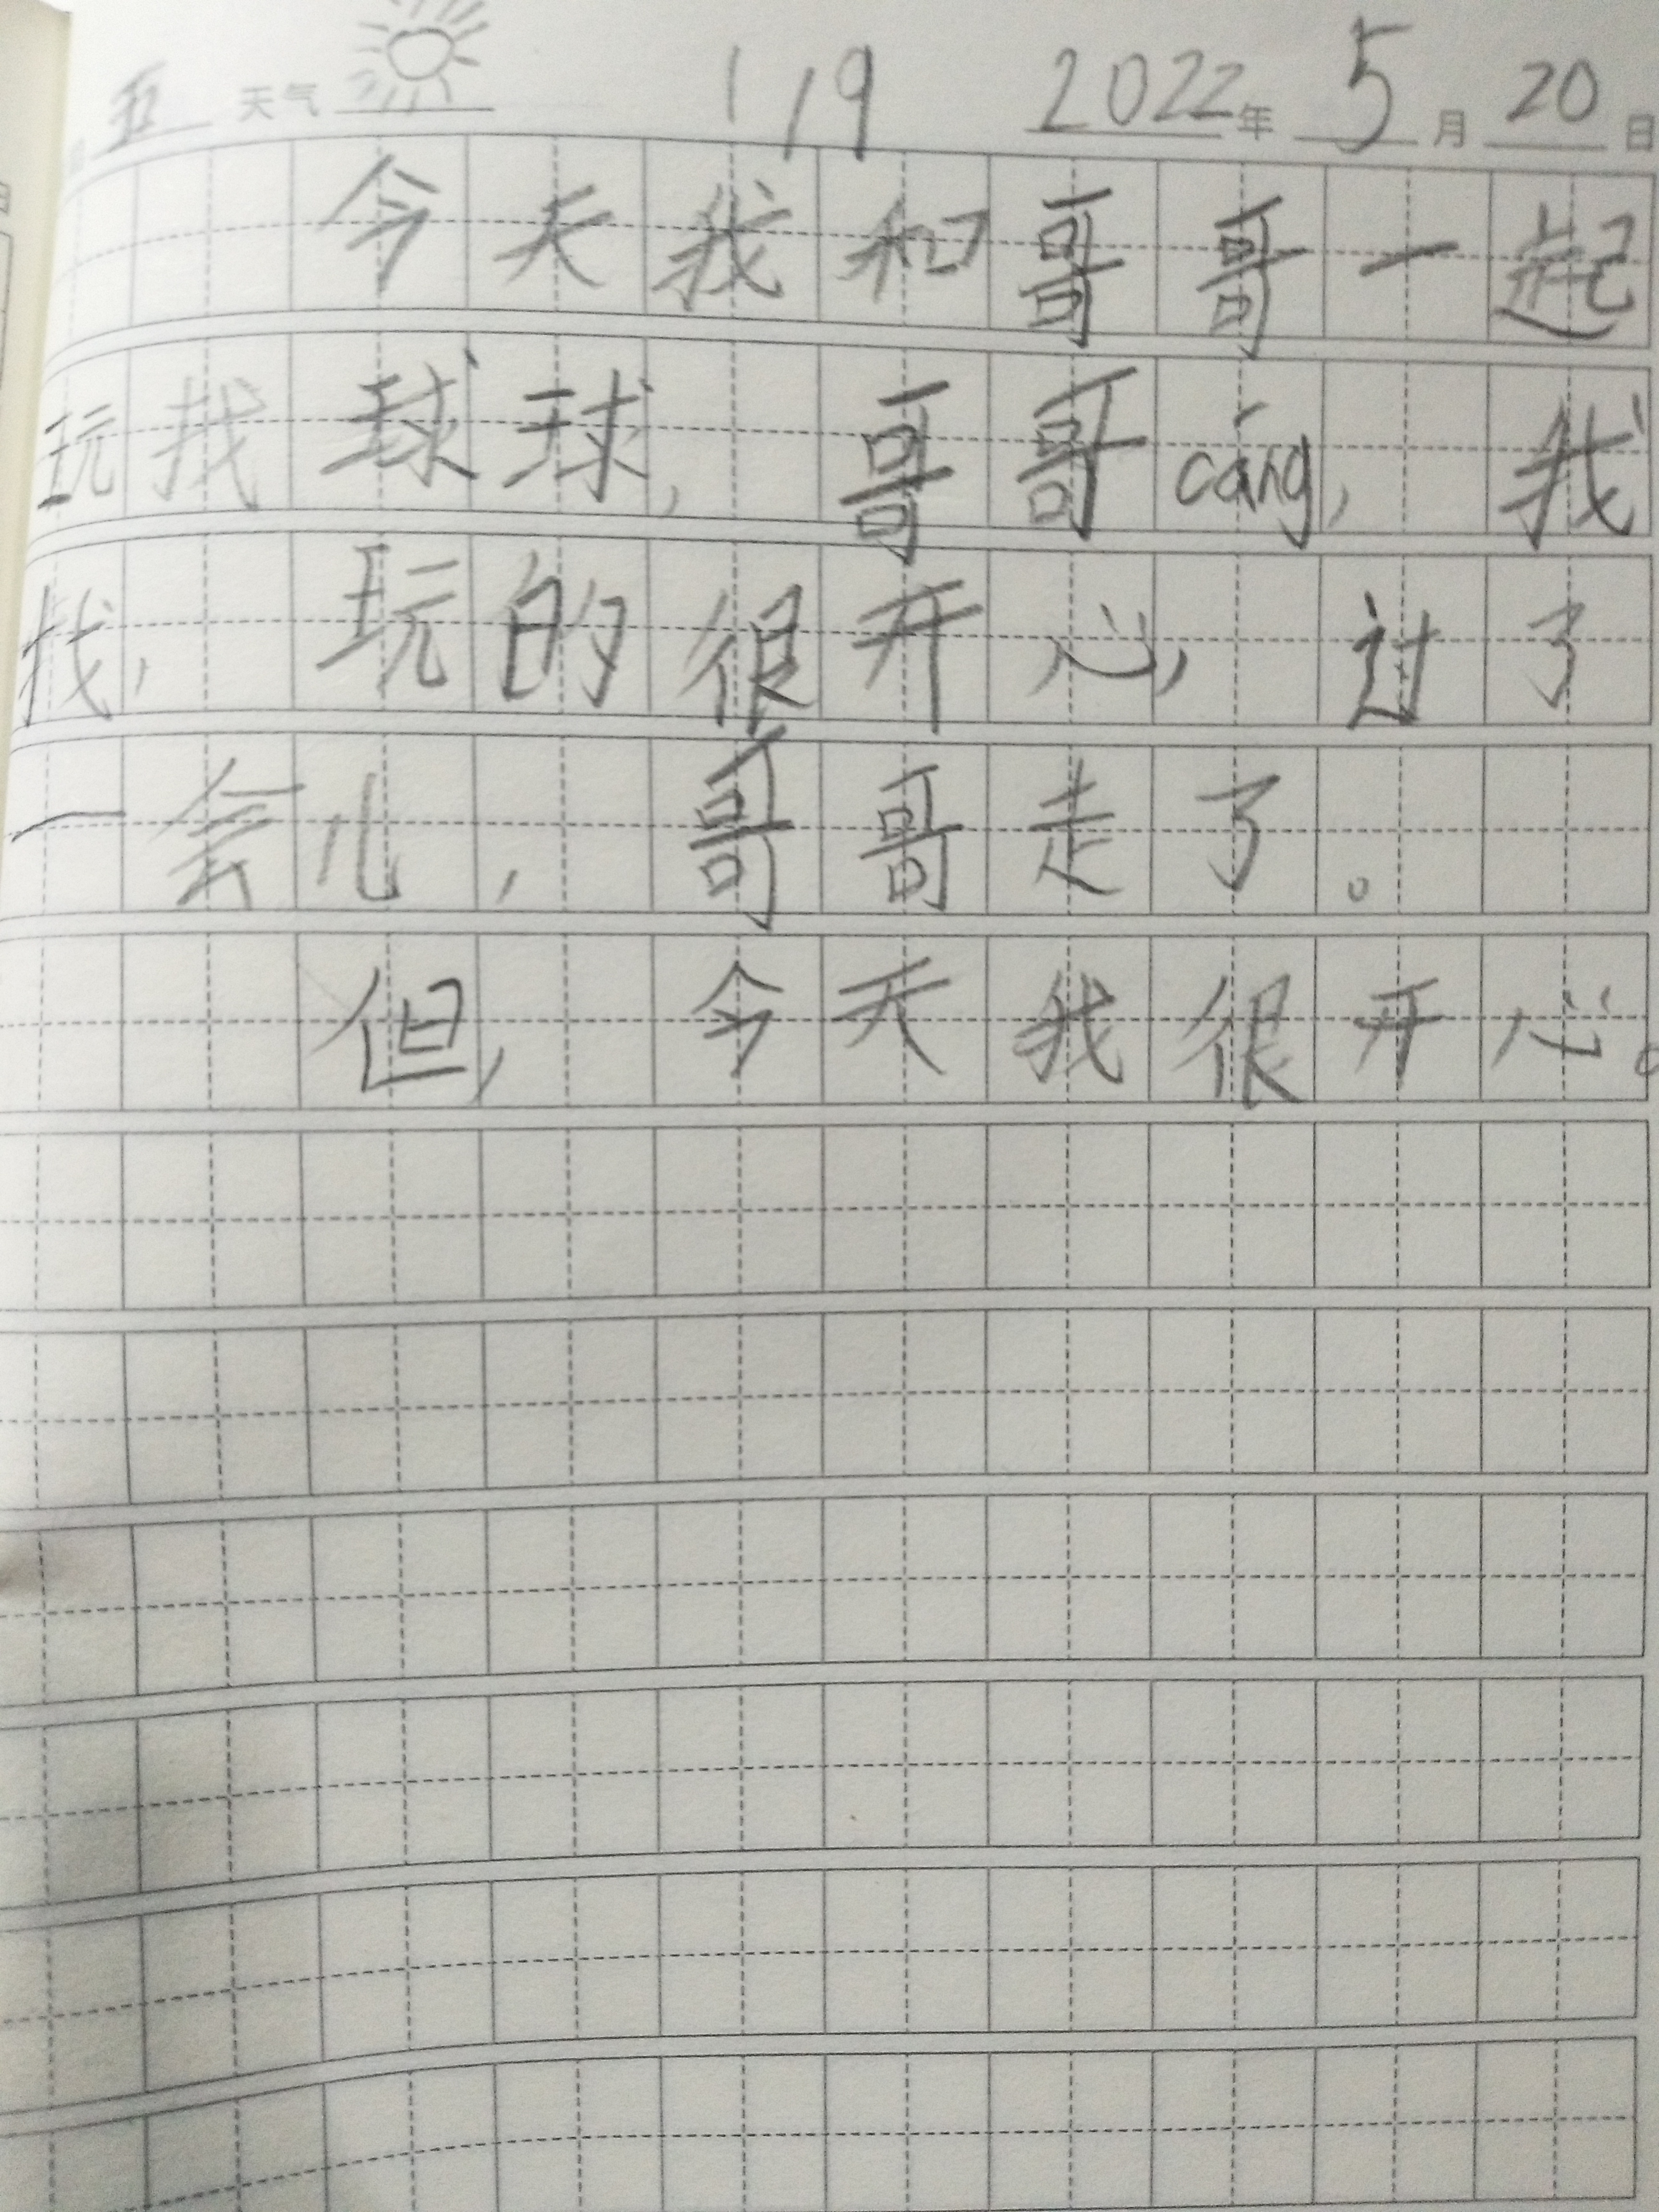 五 天气 119 2022年 5月 20日
今天我和哥哥一起
玩找球球，哥哥cáng，我
找，玩的很开心，过了
一会儿，哥哥走了。
但，今天我很开心。